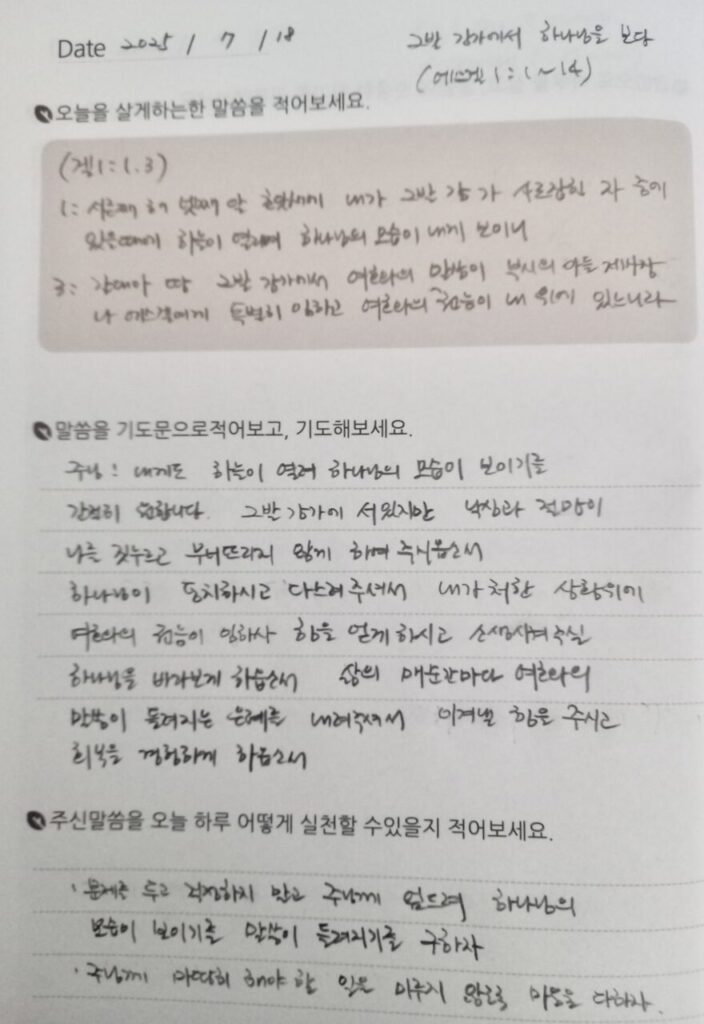 Date 2025 / 7 / 18
그발 강가에서 하나님을 보다
(에스겔 1:1~14)
오늘을 살게하는한 말씀을 적어보세요.
(겔1:1.3)
1: 서른째 해 넷째 달 초닷새에 내가 그발 강 가 사로잡힌 자 중에
있을때에 하늘이 열리며 하나님의 모습이 내게 보이니
3: 갈대아 땅 그발 강가에서 여호와의 말씀이 부시의 아들 제사장
나 에스겔에게 특별히 임하고 여호와의 권능이 내 위에 있느니라
말씀을 기도문으로적어보고, 기도해보세요.
주님! 내게도 하늘이 열려 하나님의 모습이 보이기를
간절히 원합니다. 그발 강가에 서있지만 낙심과 절망이
나를 짓누르고 무너뜨리지 않게 하여 주시옵소서
하나님이 통치하시고 다스려주셔서 내가 처한 상황위에
여호와의 권능이 임하사 힘을 얻게 하시고 소생시켜주실
하나님을 바라보게 하옵소서 삶의 매순간마다 여호와의
말씀이 들려지는 은혜를 내려주셔서 이겨낼 힘을 주시고
회복을 경험하게 하옵소서
주신말씀을 오늘 하루 어떻게 실천할 수있을지 적어보세요.
· 문제를 두고 걱정하지 말고 주님께 엎드려 하나님의
모습이 보이기를 말씀이 들려지기를 구하자
· 주님께 마땅히 해야 할 일은 미루지 않도록 마음을 다하자.